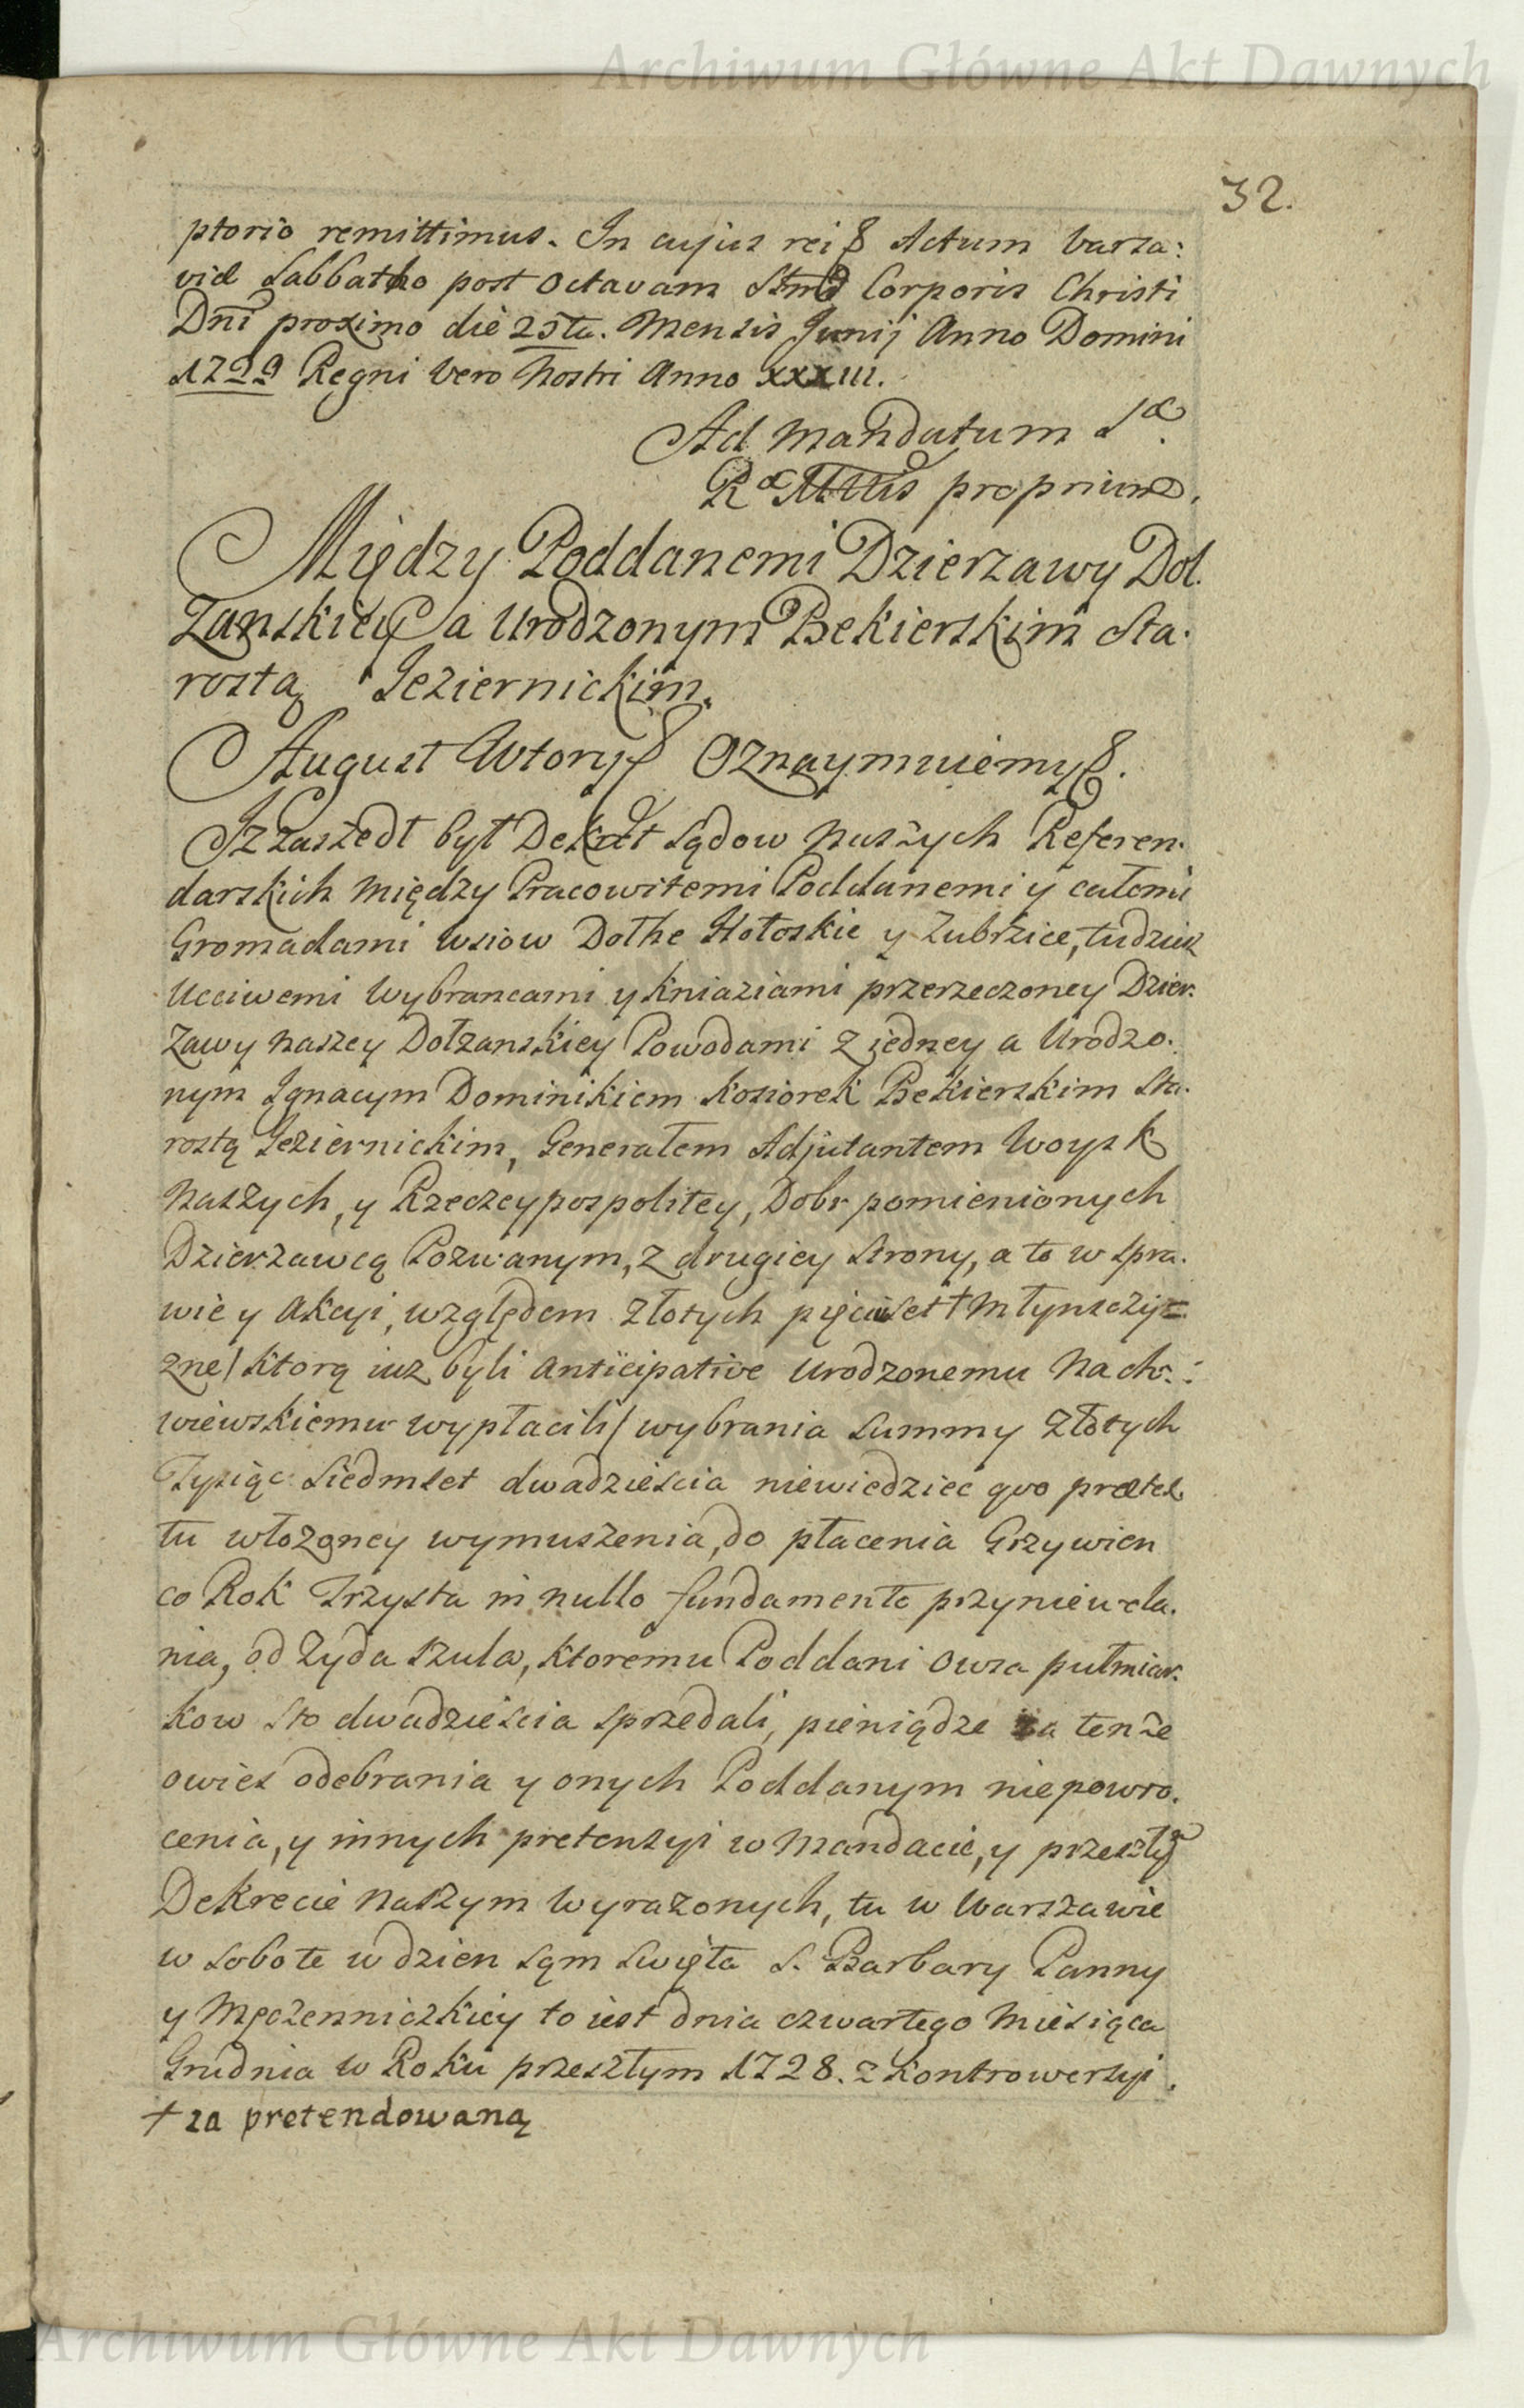 Archiwum Główne Akt Dawnych
32.
ptorio remittimus. In cujus rei & Actum Varsa:
viæ Sabbatho post Octavam Corporis Christi
Dni proximo die 25ta. Mensis Junij Anno Domini
1729 Regni vero Nostri Anno XXXIII.
Ad Mandatum Sæ
Ræ Mttis proprium.
Między Poddanemi Dzierzawy Doł.
zanskiey a Urodzonym Bekierskim Sta.
rostą Jeziernickim.
August Wtory & Oznaymuiemy &.
Iz zaszedł był Dekret Sądow Naszych Referen.
darskich między Pracowitemi Poddanemi y całemi
Gromadami wsiow Dołhe Hołoskie y Zubrzice, tudziesz
Ucciwemi Wybrancami y Kniaziami przerzeczoney Dzier.
zawy Naszey Dołzanskiey Powodami z iedney a Urodzo.
nym Ignacym Dominikiem Kosiorek Bekierskim Sta.
rostą Jeziernickim, Generałem Adjutantem Woysk
Naszych, y Rzeczeypospolitey, Dobr pomienionych
Dzierzawcą Pozwanym, z drugiey strony, a to w spra.
wie y Akcyi, względem złotych pięciuset + Młynszczyz=
znę/ ktorą iuz byli anticipative Urodzonemu Nach:
wiewskiemu wypłacili/ wybrania summy złotych
Tysiąc siedmset dwadziescia niewiedziec quo prætex.
tu włozoney wymuszenia, do płacenia Grzywien
co Rok Trzysta in nullo fundamento przyniewola.
nia, od Zyda Szula, ktoremu Poddani owsa pułmiar.
kow sto dwadziescia sprzedali, pieniądze za tenze
owies odebrania y onych Poddanym niepowro.
cenia, y innych pretensyi w Mandacie, y przeszłym
Dekrecie Naszym wyrazonych, tu w Warszawie
w Sobotę w dzien sąm Swięta S. Barbary Panny
y Męczenniczkiey to iest dnia czwartego Miesiąca
Grudnia w Roku przeszłym 1728. z kontrowersyi
+ za pretendowaną
Archiwum Główne Akt Dawnych